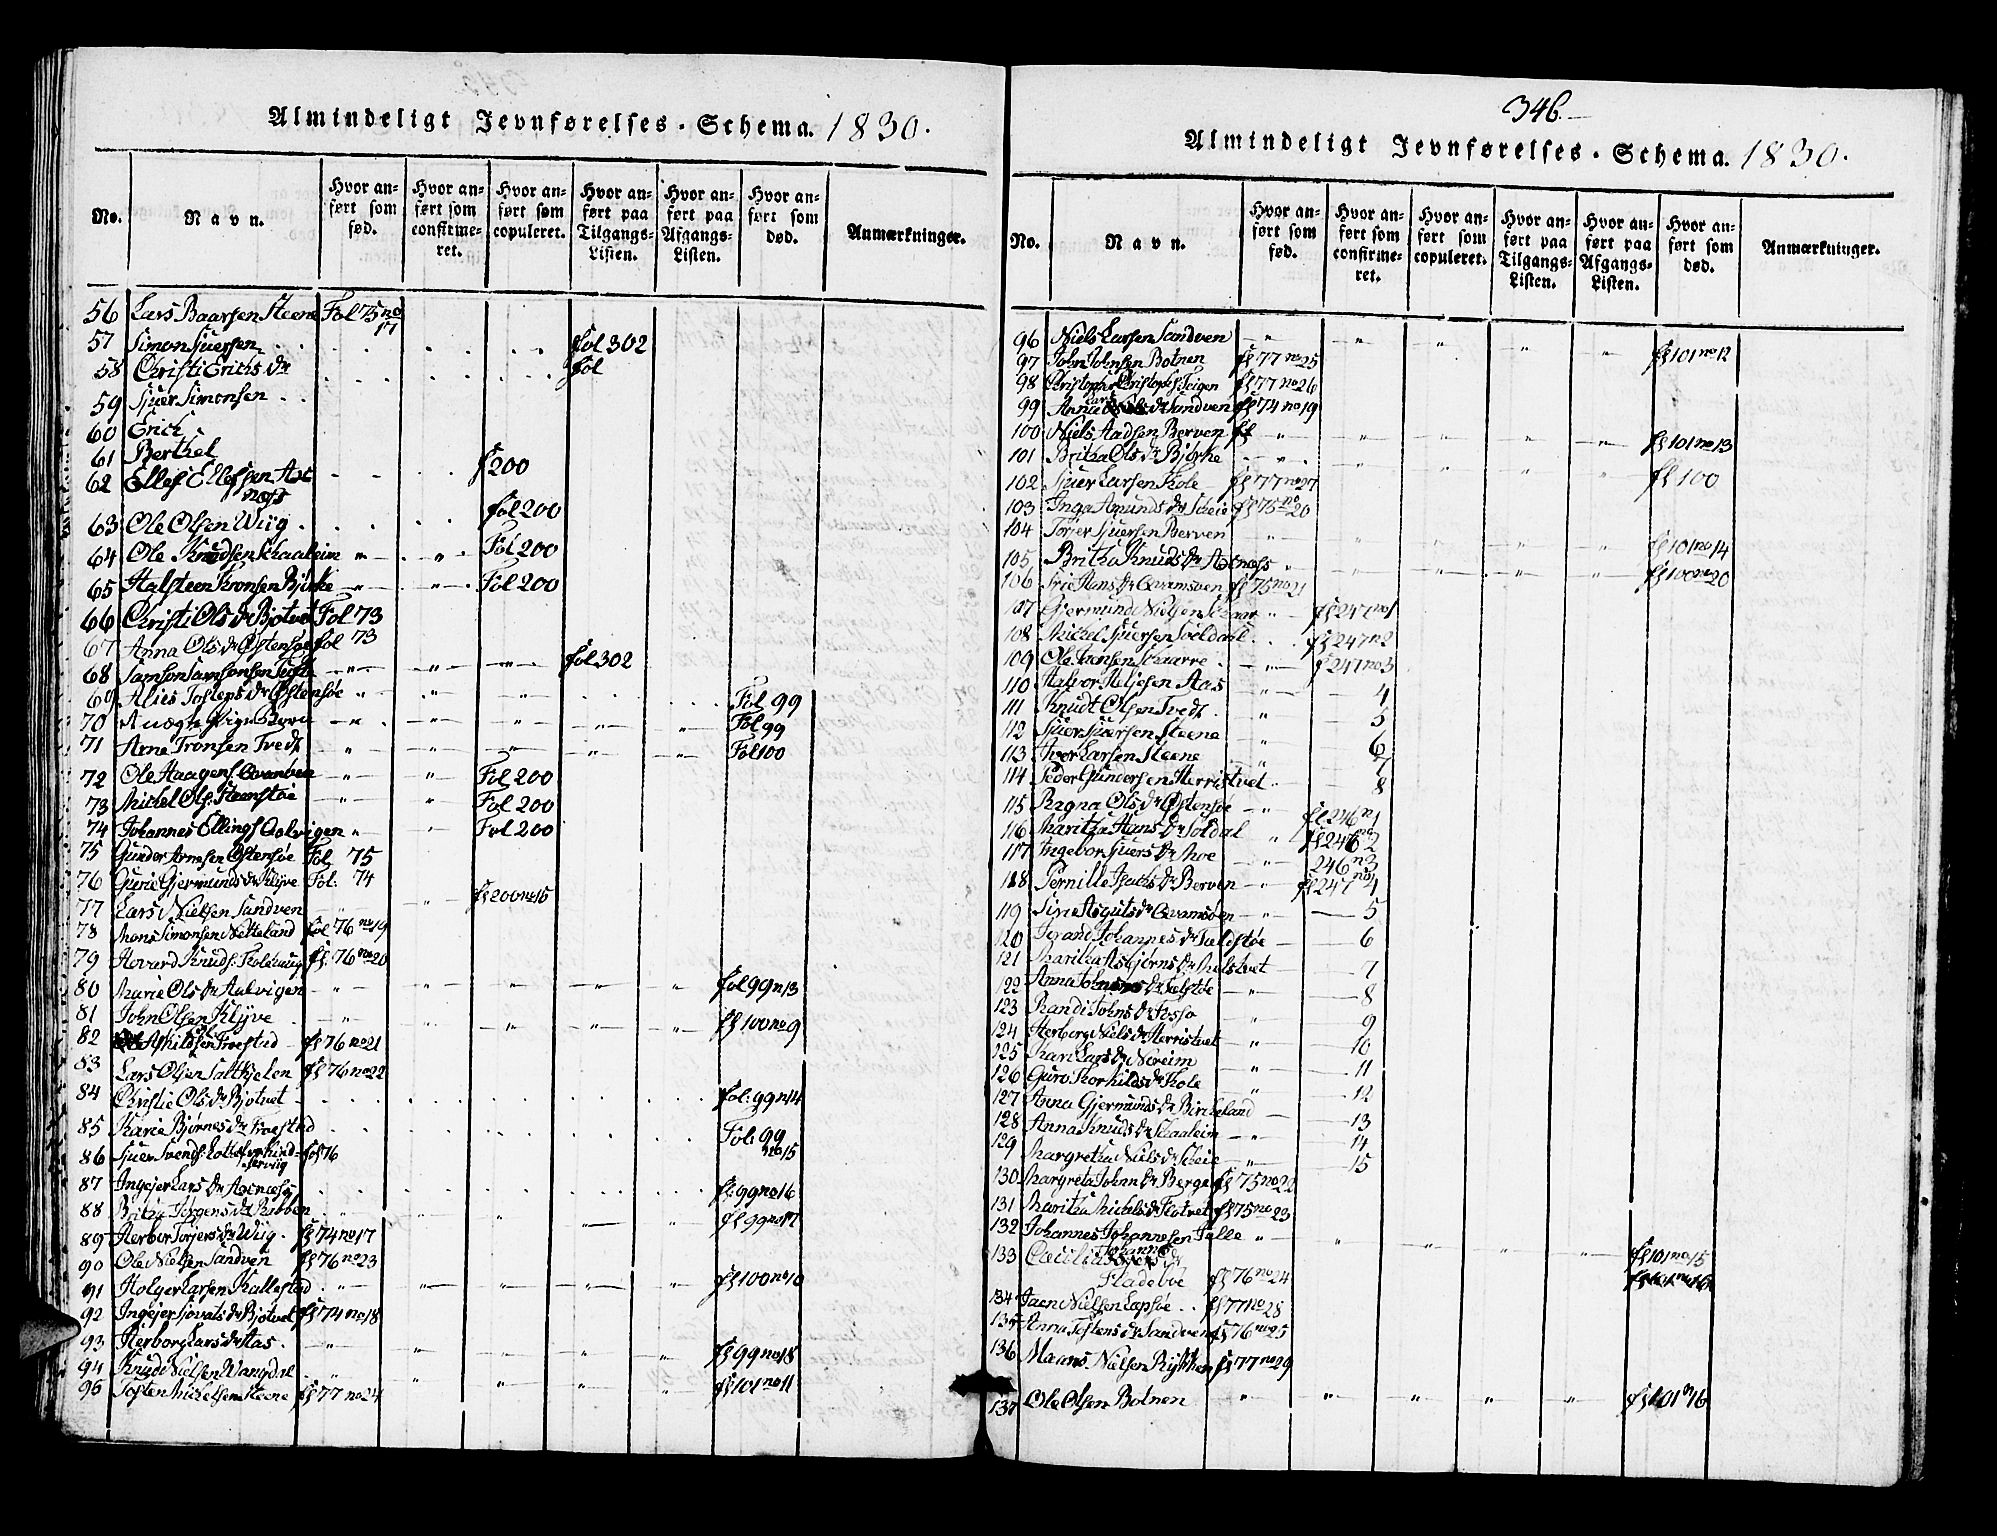 Almindeligt Jevnførelses-Schema. 1830.
No. Navn. Hvor anført som fød. Hvor anført som confirmeret. Hvor anført som copuleret. Hvor anført paa Tilgangs-Listen. Hvor anført paa Afgangs-Listen. Hvor anført som død. Anmærkninger.
56 Lars Baarsen Steene Fol 75 no 17
57 Simon Sjuersen Fol 302
58 Christi Erichs Dr fol
59 Sjuer Simonsen
60 Erich
61 Berthel
62 Ellef Ellefsen Axnæss f 200
63 Ole Olsen Wiig fol 200
64 Ole Knudsen Schaaleim Fol 200
65 Halsteen Tronsen Birke Fol 200
66 Christi Ols Dr Bjotvet Fol 73
67 Anna Ols Dr Østensøe fol 73
68 Samson Samsonsen fol 302
69 Østensøe Fol 99
70 Fol 99
71 Arne Tronsen Tvedt Fol 100
72 Ole Haagens. Fol 200
73 Michel Ols. Steenstøe Fol 200
74 Johannes Ellings Aalvigen Fol 200
75 Gunder Arnesen Østensøe Fol 75
76 Gurie Gjermunds Dr Klyve Fol. 74
77 Lars Nielsen Sandven fl 200 no 15
78 Mons Simonsen Netteland fol 76 no 19
79 Havard Knuds. fl 76 no 20
80 Marie Ols Dr Aalvigen fol 99 n 13
81 John Olsen Klyve fl 100 no 9
82 fl 76 no 21
83 Lars Olsen fl 76 no 22
84 Christie Ols Dr Bjotvet fol: 99 n 14
85 Karie Bjørnes Dr Froestad Fol. 99 no 15
86 Sjuer Svends. fol 76
87 Ingejer Lars Dr Axnæss fl: 99 no 16
88 Britha Jørgens Dr fl 99 no 17
89 Herbor Torjers Dr Wiig. fl 74 no 17
90 Ole Nielsen Sandven fl 76 no 23
91 Holger Larsen Kallestad fl 100 no 10
92 Ingejer Sjovats Dr Bjotvet fl 74 no 18
93 Herborg Lars Dr Aas. fl 99 no 18
94 Knud Nielsen Wangdal fl 101 no 11
95 Tosten Michelsen Steene fl 77 no 24
346.
Almindeligt Jevnførelses-Schema. 1830.
No. Navn. Hvor anført som fød. Hvor anført som confirmeret. Hvor anført som copuleret. Hvor anført paa Tilgangs-Listen. Hvor anført paa Afgangs-Listen. Hvor anført som død. Anmærkninger.
96 Niels Larsen Sandven fl 101 no 12
97 John Johnsen Botnen fl 77 no 25
98 Christopher Christophs. Teigen fl 77 no 26
99 Anna Lars Dr Sandven fl 74 no 19
100 Niels Aadsen Berven fl fl 101 no 13
101 Britha Ols Dr Bjørke fl 100
102 Sjuer Larsen Skole fl 77 no 27
103 Inga Amunds Dr Scheie fl 75 no 20
104 Torjer Sjuersen Berven fl 101 no 14
105 Britha Knuds Dr Axnæss fl 100 no 20
106 Hans Dr fl 75 no 21
107 Gjermund Nielsen Schaar fl 247 no 1
108 Michel Sjuersen Soeldahl fl 247 no 2
109 Ole Schaarre fl 247 no 3
110 Halvor Heljesen Aas 4
111 Knudt Olsen Tvedt 5
112 Sjuer Sjuersen Steene 6
113 Iver Larsen Steene 7
114 Peder Gundersen Herristvet 8
115 Ragna Ols Dr Østensøe fl 246 n 1
116 Maritha Hans Dr Soldal fl 246 no 2
117 Ingebor Sjuers Dr Moe 246 n 3
118 Pernille Dr Berven fl 247 no 4
119 Sirie Asguts Dr 5
120 Johannes Dr 6
121 Maritha Asbjørns Dr 7
122 Anna Dr 8
123 Randi Johns Dr Fosso 9
124 Herborg Niels Dr Herristvet 10
125 Kari Lars Dr Noreim 11
126 Guro Torkilds Dr Skole 12
127 Anna Gjermunds Dr Birkeland 13
128 Anna Knuds Dr Schaaleim 14
129 Margretha Niels Dr Scheie 15
130 Margreta Johnn Dr Berge fl 75 no 22
131 Maritha Michels Dr Flotvet fl 75 no 23
132 Johannes Johannesen fl 101 no 15
133 Cæcilia Johannes Dr
Fladebøe fl 76 no 24
134 Nielsen Lepsøe fl 77 no 28
135 Anna Tostens Dr Sandven fl 76 no 25
136 Maans Nielsen fl 77 no 29
137 Ole Olsen Botnen fl 101 n 16